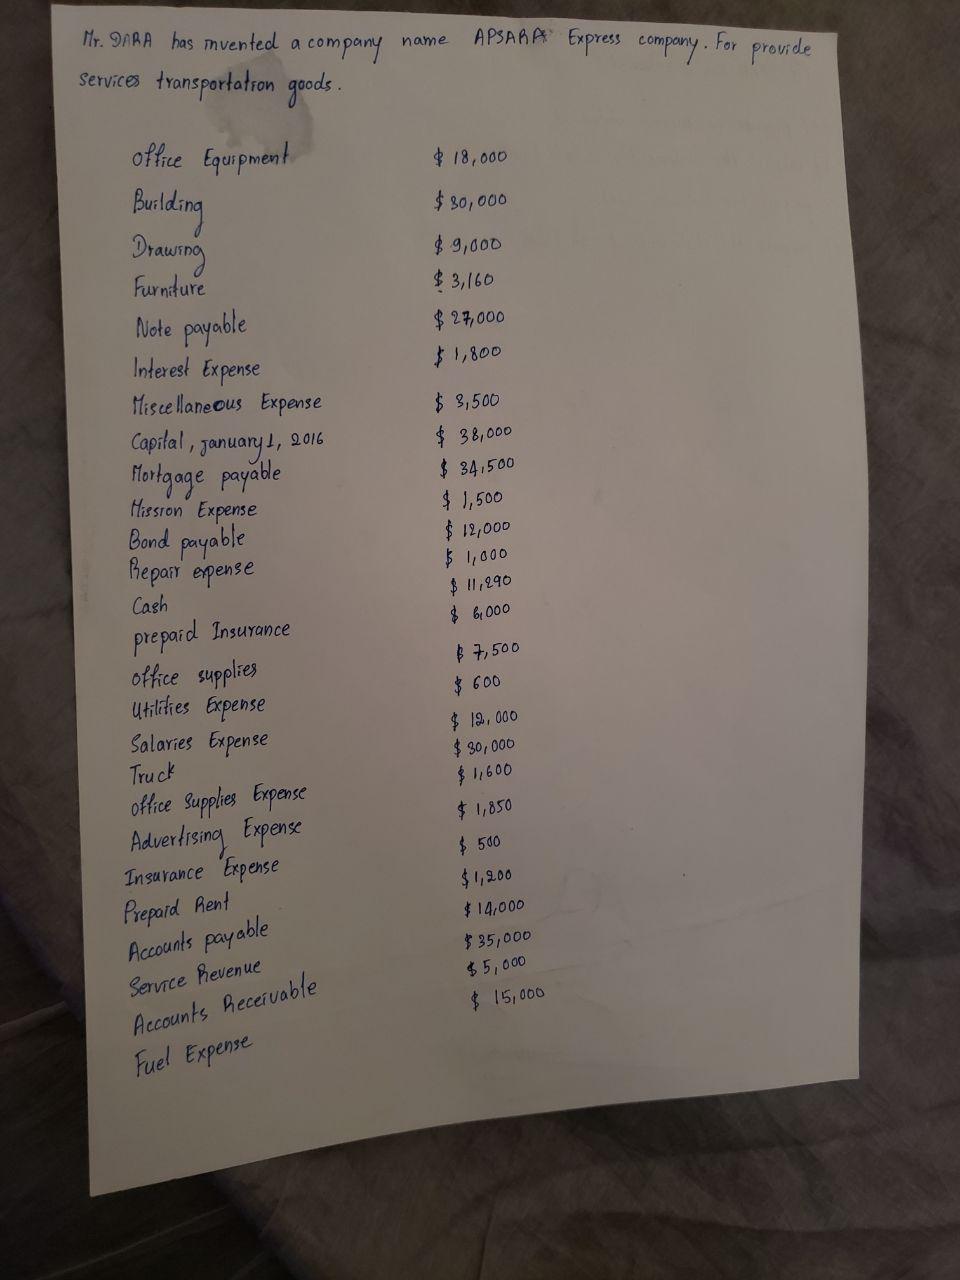 Mr. DARA has invented a company name APSARA Express company. For provide
services transportation goods.
office Equipment $ 18,000
Building $ 30,000
Drawing $ 9,000
Furniture $ 3,160
Note payable $ 27,000
Interest Expense $ 1,800
Miscellaneous Expense $ 3,500
Capital, January 1, 2016 $ 38,000
Mortgage payable $ 34,500
Mission Expense $ 1,500
Bond payable $ 12,000
Repair expense $ 1,000
Cash $ 11,290
prepaid Insurance $ 6,000
office supplies $ 7,500
Utilities Expense $ 600
Salaries Expense $ 12,000
Truck $ 30,000
office Supplies Expense $ 1,600
Advertising Expense $ 1,850
Insurance Expense $ 500
Prepaid Rent $ 1,200
Accounts payable $ 14,000
Service Revenue $ 35,000
Accounts Receivable $ 5,000
Fuel Expense $ 15,000